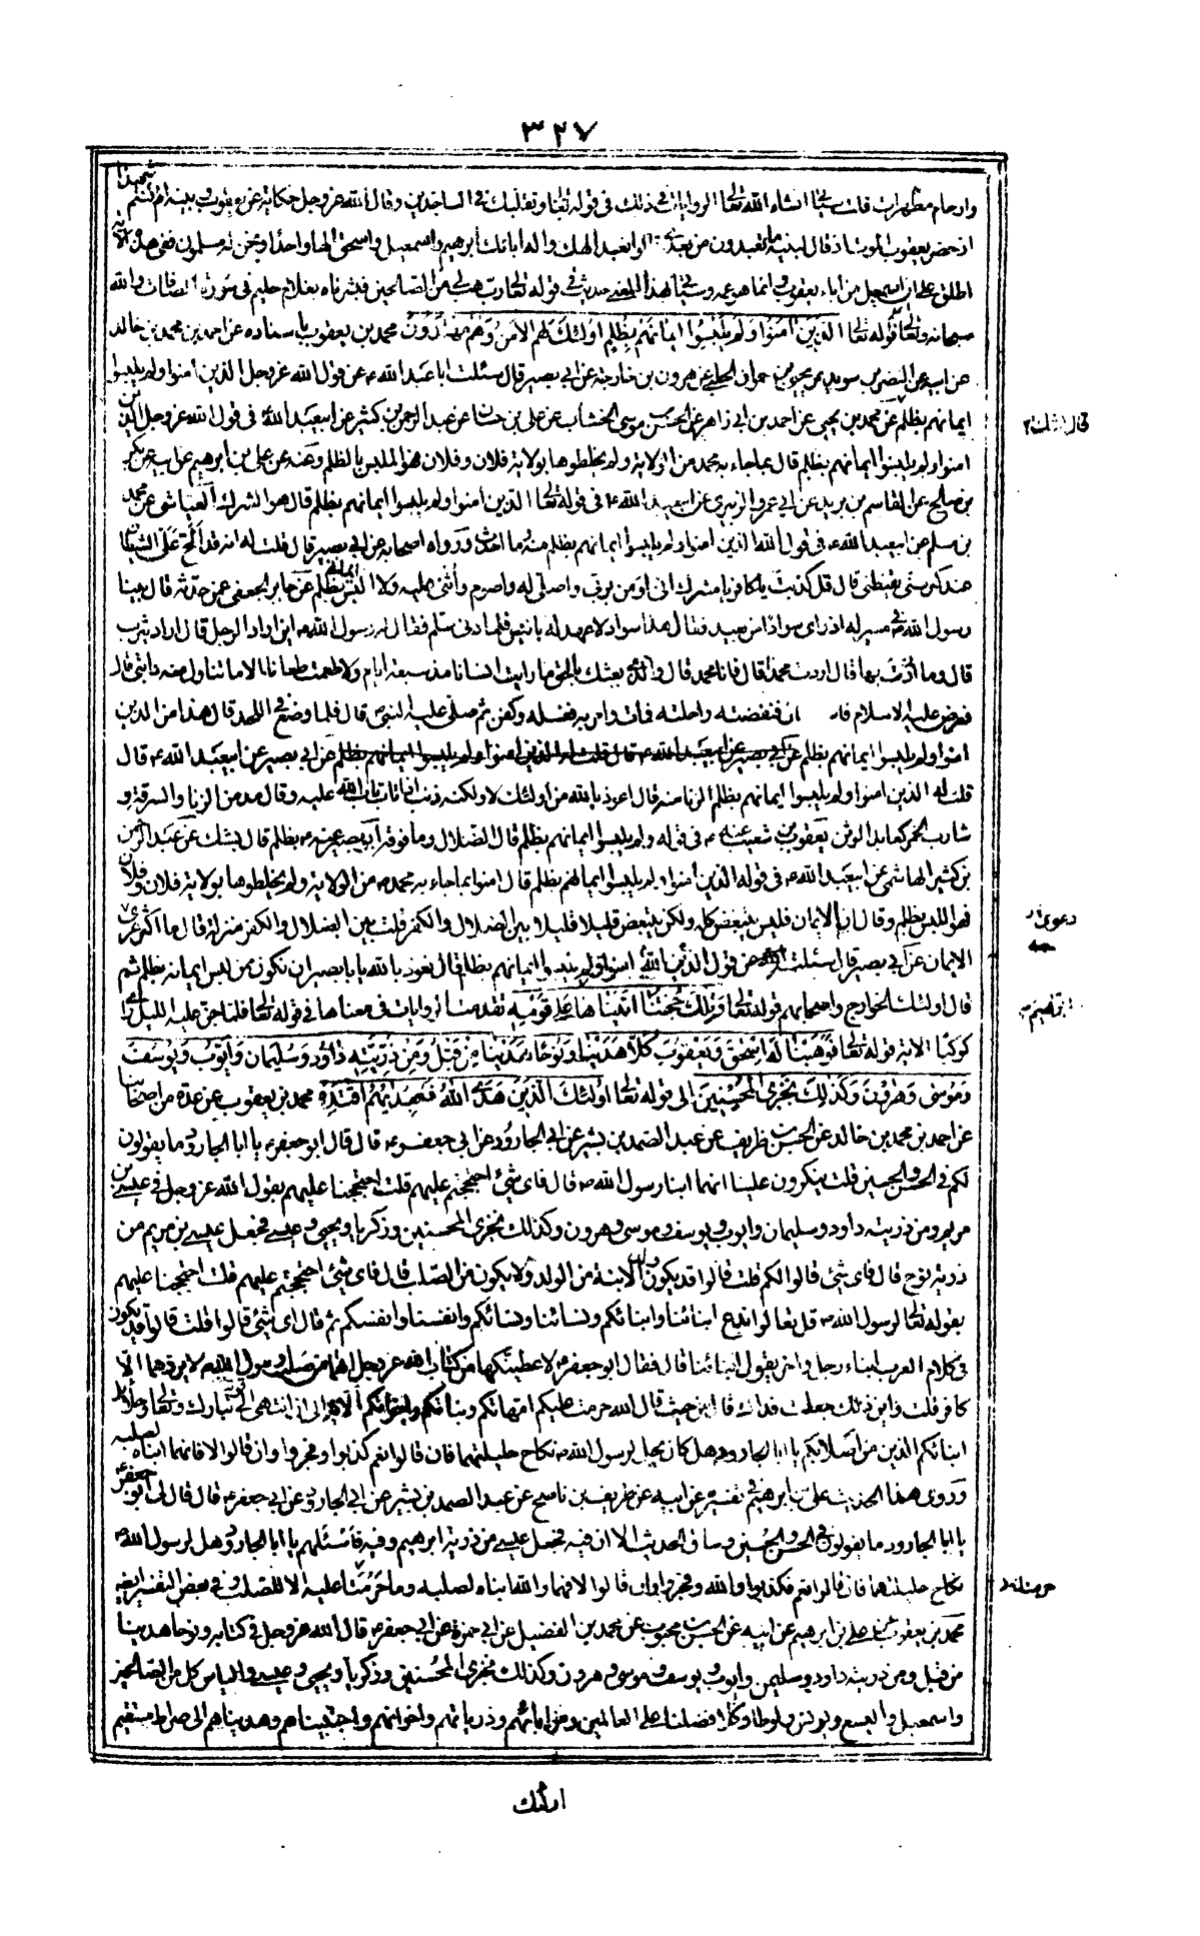 ٣٢٧
وارحام مطهرات انشاء الله تعالى الروايات في ذلك في قوله تعالى وتقلبك في الساجدين وقال الله عز وجل حكاية عن يعقوب وبنيه ام كنتم شهداء
اذ حضر يعقوب الموت اذ قال لبنيه ما تعبدون من بعدي قالوا نعبد الهك واله ابائك ابرهيم واسمعيل واسحق الها واحدا ونحن له مسلمون
اطلق على اسمعيل من اباء يعقوب وانما هو عمه وسيأتي بهذا المعنى حديث في قوله تعالى رب هب لي من الصالحين فبشرناه بغلام حليم في سورة الصافات والله
سبحانه وتعالى قوله تعالى الذين آمنوا ولم يلبسوا ايمانهم بظلم اولئك لهم الامن وهم مهتدون محمد بن يعقوب باسناده عن احمد بن محمد بن خالد
عن ابيه عن النضر بن سويد عن يحيى بن عمران الحلبي عن هرون بن خارجة عن ابي بصير قال سئلت ابا عبد الله ع عن قول الله عز وجل الذين آمنوا ولم يلبسوا
ايمانهم بظلم عن محمد بن يحيى عن احمد بن ابي زاهر عن الحسن بن موسى الخشاب عن علي بن حسان عن عبد الرحمن بن كثير عن ابيعبد الله في قول الله عز وجل الذين
امنوا ولم يلبسوا ايمانهم بظلم قال بما جاء به محمد من الولاية ولم يخلطوها بولاية فلان وفلان فهو الملبس بالظلم وعنه عن علي بن ابرهيم عن ابيه عن بكر
بن صالح عن القاسم بن بريد عن ابي عمرو الزبيري عن ابيعبد الله ع في قوله تعالى الذين امنوا ولم يلبسوا ايمانهم بظلم قال هو الشرك العياشي عن محمد
بن مسلم عن ابيعبد الله ع في قول الله الذين امنوا ولم يلبسوا ايمانهم بظلم منه وما احدث زرارة واصحابه عن ابي بصير قال قلت له انه قد الح على الشيطان
عند كبر سني يقنطني قال قل كذبت يا كافر يا مشرك اني اؤمن بربي واصلي له واصوم واثني عليه ولا البس ايماني بظلم عن جابر الجعفي عمن حدثه قال بينا
رسول الله ص في مسير له اذ راى سوادا من بعيد فقال هذا سواد لا عهد له بانيس فلما دنى سلم فقال له رسول الله ص اين اراد الرجل قال اراد يثرب
قال وما اردت بها قال اردت محمدا قال فانا محمد قال والذي بعثك بالحق ما رايت انسانا مذ سبعة ايام ولا طعمت طعاما الا ما تناول منه دابتي قال
فعرض عليه الاسلام فنفضته راحلته فمات وامر به فغسله وكفن ثم صلى عليه النبي ص قال فلما وضع في اللحد قال هذا من الذين
امنوا ولم يلبسوا ايمانهم بظلم عن ابي بصير عن ابيعبد الله ع قال قلت له الذين امنوا ولم يلبسوا ايمانهم بظلم عن ابي بصير عن ابيعبد الله ع قال
قلت له الذين امنوا ولم يلبسوا ايمانهم بظلم الزنا منه قال اعوذ بالله من اولئك لا ولكنه ذنب اذا تاب تاب الله عليه وقال مدمن الزنا والسرقة و
شارب الخمر كعابد الوثن يعقوب بن شعيب عنه ع في قوله ولم يلبسوا ايمانهم بظلم قال الضلال وما فوقه ابو بصير عنه ع بظلم قال بشك عن عبد الرحمن
بن كثير الهاشمي عن ابيعبد الله ع في قوله الذين امنوا ولم يلبسوا ايمانهم بظلم قال امنوا بما جاء به محمد ص من الولاية ولم يخلطوها بولاية فلان وفلان
فهو اللبس بظلم وقال ان الايمان فليس يتبعض كله ولكن يتبعض قليلا قليلا بين الضلال والكفر قلت بين الضلال والكفر منزلة قال ما اكثر عرى
الايمان عن ابي بصير قال سئلته عن قول الله الذين امنوا ولم يلبسوا ايمانهم بظلم قال نعوذ بالله يا ابا بصير ان نكون ممن لبس ايمانه بظلم ثم
قال اولئك الخوارج واصحابهم قوله تعالى وتلك حجتنا اتيناها على قومه تقدمت الروايات في معناها في قوله تعالى فلما جن عليه الليل راى
كوكبا الاية قوله تعالى ووهبنا له اسحق ويعقوب كلا هدينا ونوحا هدينا من قبل ومن ذريته داود وسليمان وايوب ويوسف
وموسى وهرون وكذلك نجزي المحسنين الى قوله تعالى اولئك الذين هدى الله فبهديهم اقتده محمد بن يعقوب عن عدة من اصحابنا
عن احمد بن محمد بن خالد عن الحسن بن ظريف عن عبد الصمد بن بشير عن ابي الجارود عن ابي جعفر ع قال قال ابو جعفر ع يا ابا الجارود ما يقولون
لكم في الحسن والحسين قلت ينكرون علينا انهما ابنا رسول الله ص قال فاي شئ احتججتم عليهم قلت احتججنا عليهم بقول الله عز وجل في عيسى بن
مريم ومن ذريته داود وسليمان وايوب ويوسف وموسى وهرون وكذلك نجزي المحسنين وزكريا ويحيى وعيسى فجعل عيسى بن مريم من
ذرية نوح قال فاي شئ قالوا لكم قلت قالوا قد يكون ولد الابنة من الولد ولا يكون من الصلب قال فاي شئ احتججتم عليهم قلت احتججنا عليهم
بقوله تعالى لرسول الله ص قل تعالوا ندع ابنائنا وابنائكم ونسائنا ونسائكم وانفسنا وانفسكم ثم قال اي شئ قالوا قلت قالوا قد يكون
في كلام العرب ابناء رجل واخر يقول ابنائنا قال فقال ابو جعفر ع لاعطيتكها من كتاب الله عز وجل انهما من صلب رسول الله ص لا يردها الا
كافر قلت واين ذلك جعلت فداك قال من حيث قال الله حرمت عليكم امهاتكم وبناتكم واخواتكم الاية الى ان انتهى الى قوله تبارك وتعالى وحلائل
ابنائكم الذين من اصلابكم يا ابا الجارود هل كان يحل لرسول الله ص نكاح حليلتهما فان قالوا نعم كذبوا وفجروا وان قالوا لا فانهما ابناه لصلبه
وروى هذا الحديث علي بن ابرهيم في تفسيره عن ابيه عن ظريف بن ناصح عن عبد الصمد بن بشير عن ابي الجارود عن ابي جعفر ع قال قال لي ابو جعفر
يا ابا الجارود ما يقولون في الحسن والحسين وساق الحديث الا ان فيه فجعل عيسى من ذرية ابرهيم وفيه فاسئلهم يا ابا الجارود هل لرسول الله ص
نكاح حليلتهما فان قالوا نعم فكذبوا والله وفجروا وان قالوا لا فهما والله ابناه لصلبه وما حرمتا عليه الا للصلب
محمد بن يعقوب عن علي بن ابرهيم عن ابيه عن الحسن بن محبوب عن محمد بن الفضيل عن ابي حمزة عن ابي جعفر ع قال الله عز وجل في كتابه ونوحا هدينا
من قبل ومن ذريته داود وسليمن وايوب ويوسف وموسى وهرون وكذلك نجزي المحسنين وزكريا ويحيى وعيسى والياس كل من الصالحين
واسمعيل واليسع ويونس ولوطا وكلا فضلنا على العالمين ومن ابائهم وذرياتهم واخوانهم واجتبيناهم وهديناهم الى صراط مستقيم
اولئك